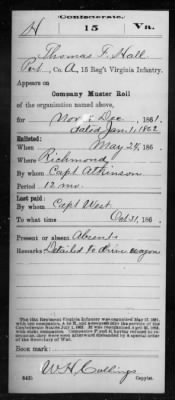 Confederate.
H 15 Va.
Thomas F. Hall
Pvt., Co. A, 15 Reg't Virginia Infantry.
Appears on
Company Muster Roll
of the organization named above,
for Nov & Dec, 1861.
dated Jan. 1, 1862
Enlisted:
When May 24, 186
Where Richmond
By whom Capt Atkinson
Period 12 mo.
Last paid:
By whom Capt West
To what time Oct 31, 186
Present or absent Absent
Remarks Detailed to drive wagon
Book mark:
W. H. Collings
Copyist.